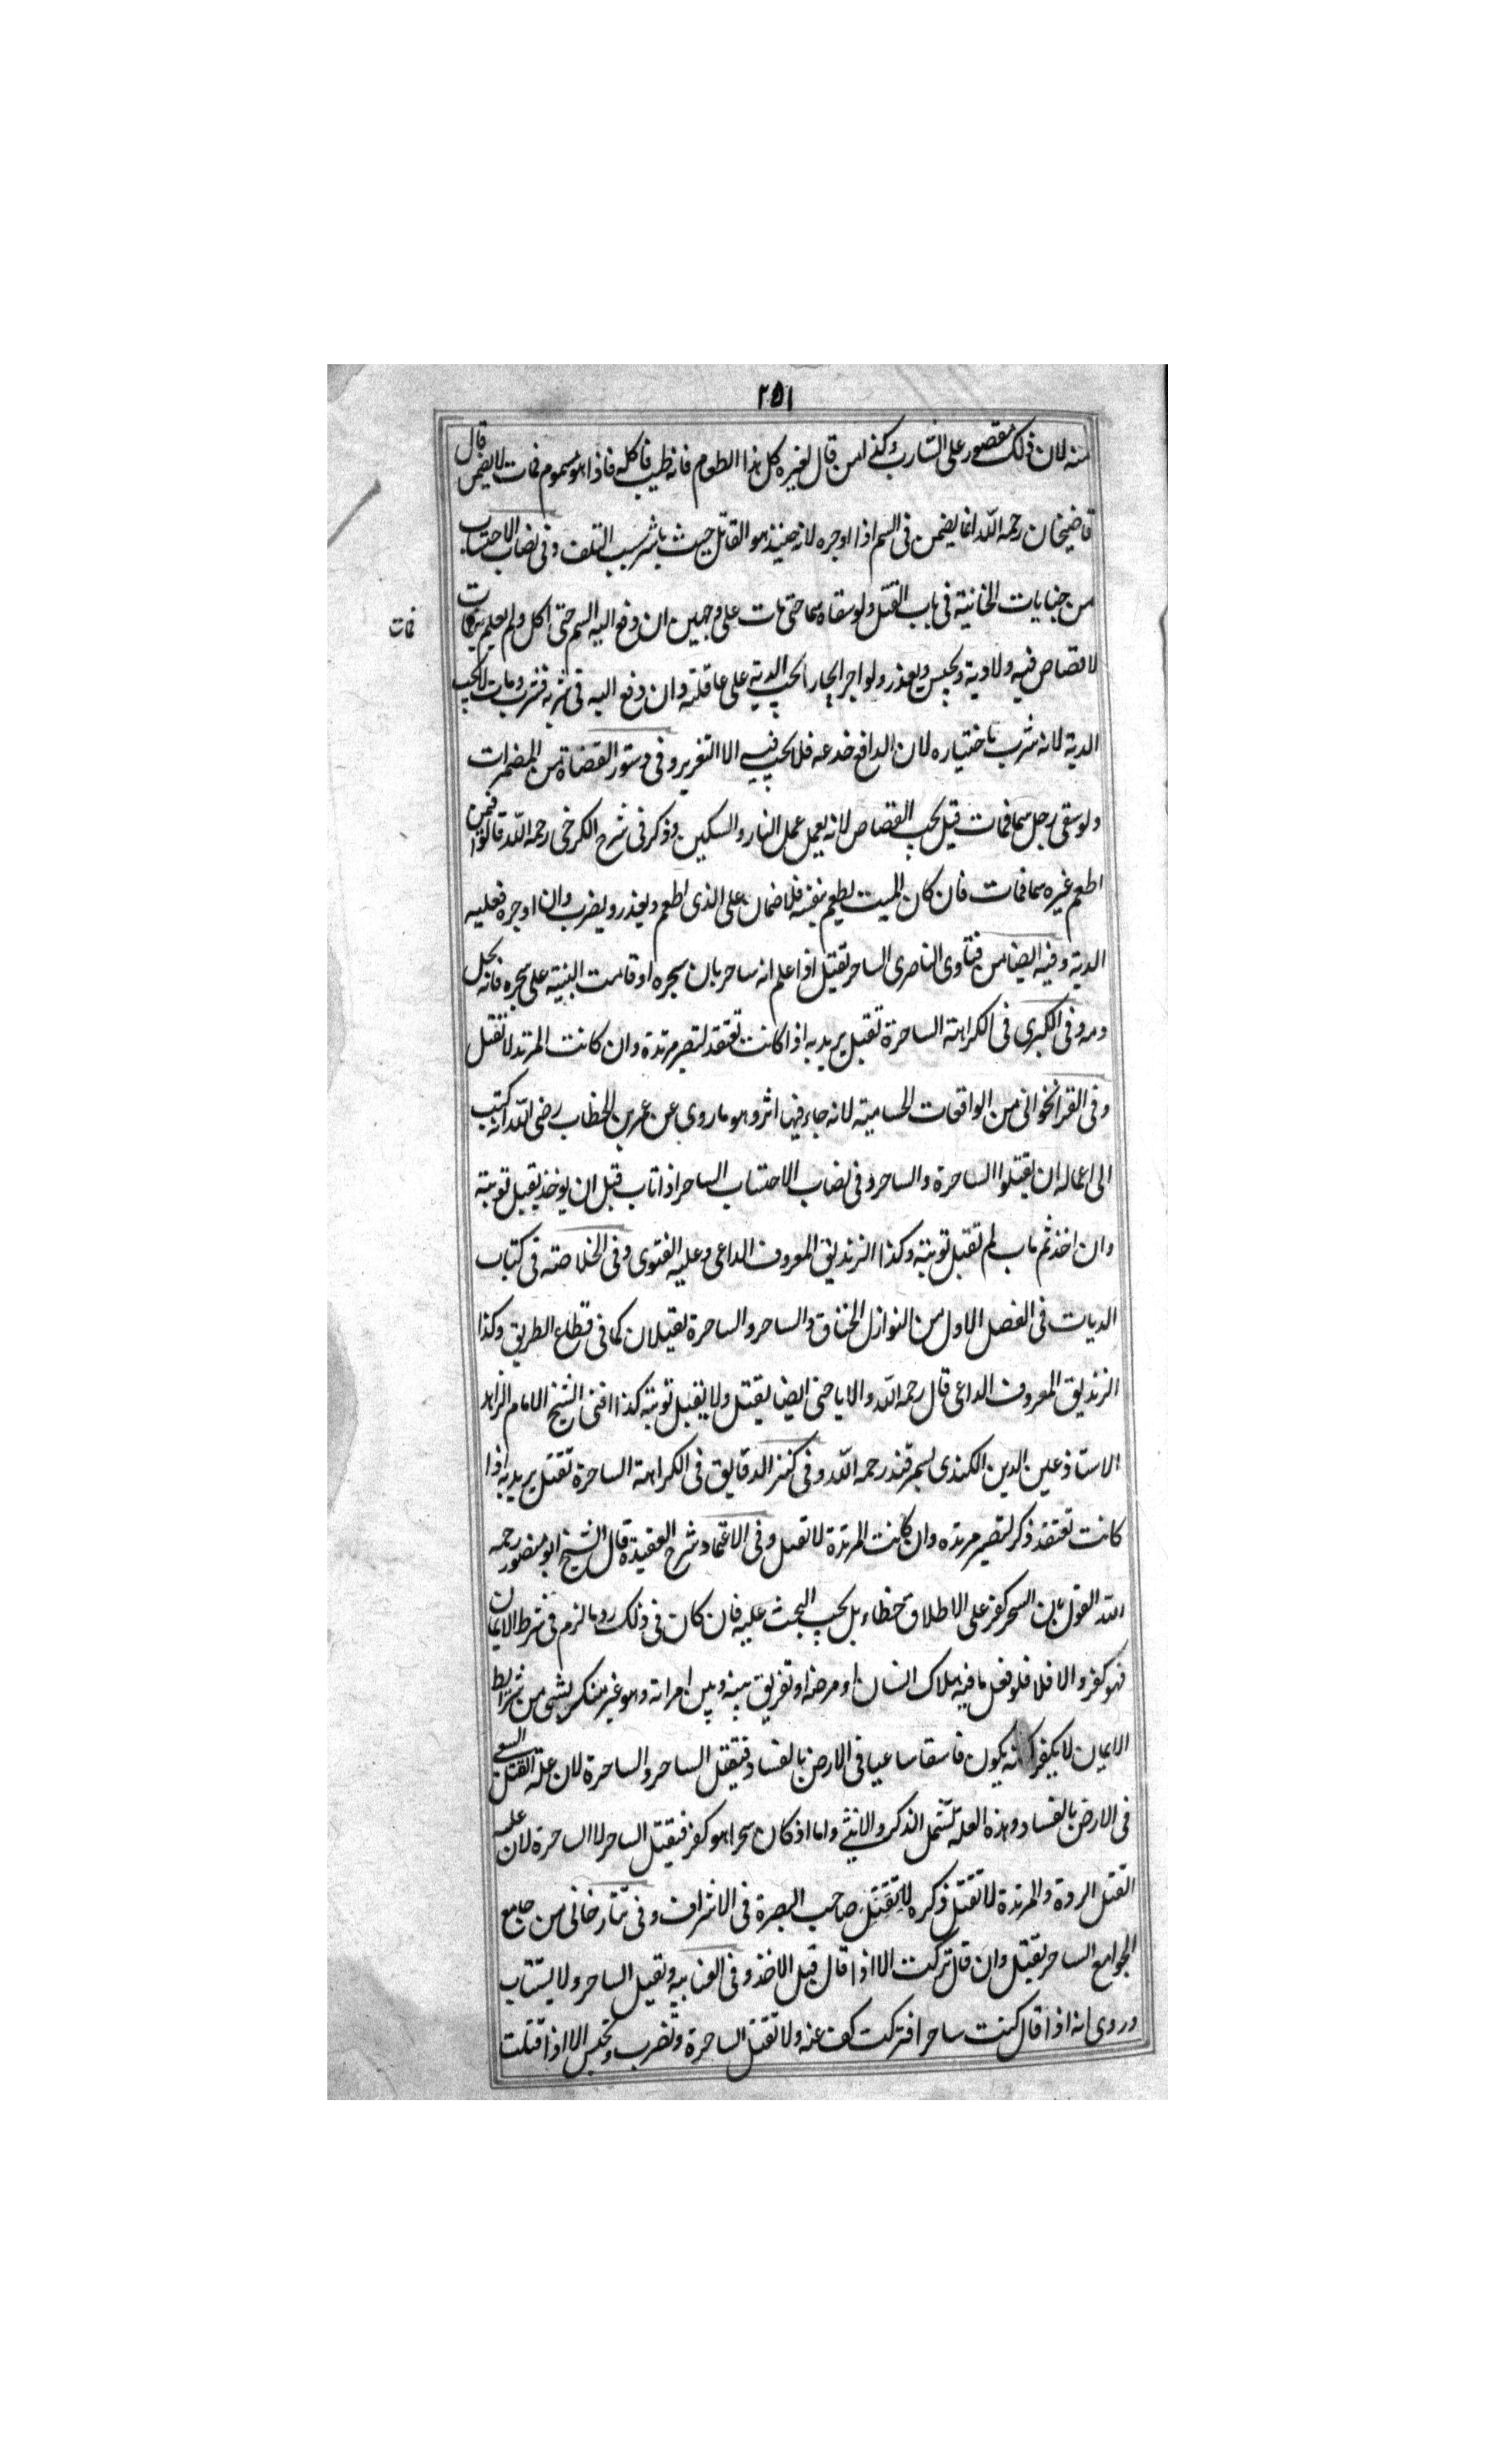 ٢٥١
منه لان ذلك مقصور على الشارب وكفى من قال لغيره كل هذا الطعام فانه طيب فاكله فاذا هو مسموم فمات لا يضمن قال
قاضيخان رحمه الله انما يضمن فى السم اذا اوجره لانه حينئذ هو القاتل حيث باشر سبب التلف وفى نصاب الاحتساب
من جنايات الخانية فى باب القتل ولو سقاه سما حتى مات على وجهين ان دفع اليه السم حتى اكل ولم يعلم به فمات
فمات
لا قصاص فيه ولا دية ويحبس ويعذر ولو اجر ايجارا يجب الدية على عاقلته وان دفع اليه فى شربة فشرب ومات لا يجب
الدية لانه شرب باختياره لان الدافع خدعه فلا يجب فيه الا التعزير وفى دستور القضاة من المضمرات
ولو سقى رجل سما فمات قيل يجب القصاص لانه يعمل عمل النار والسكين وذكر فى شرح الكرخى رحمه الله قالوا فيمن
اطعم غيره سما فمات فان كان الميت يطعم بنفسه فلا ضمان على الذى اطعم ويعذر ويضرب وان اوجره فعليه
الدية وفيه ايضا من فتاوى الناصرى الساحر يقتل اذا علم انه ساحر بان سحره او قامت البينة على سحره فانه يحل
دمه وفى الكبرى فى الكراهة الساحرة تقتل يريد به اذا كانت تعتقد لتصير مرتدة وان كانت المرتد لا تقتل
وفى القراخوانى من الواقعات الحسامية لانه جاء فيها اثر وهو ما روى عن عمر بن الخطاب رضى الله انه كتب
الى اعماله ان يقتلوا الساحرة والساحر وفى نصاب الاحتساب الساحر اذا تاب قبل ان يوخذ يقبل توبته
وان اخذ ثم تاب لم تقبل توبته وكذا الزنديق المعروف الداعى وعليه الفتوى وفى الخلاصة فى كتاب
الديات فى الفصل الاول من النوازل الخناق والساحر والساحرة يقتلان كما فى قطاع الطريق وكذا
الزنديق المعروف الداعى قال رحمه الله والاباحى ايضا يقتل ولا يقبل توبته كذا افتى الشيخ الامام الزاهد
الاستاذ عين الدين الكندى بسمرقند رحمه الله وفى كنز الدقايق فى الكراهة الساحرة تقتل يريد به اذا
كانت تعتقد ذكر لتصير مرتده وان كانت المرتدة لا تقتل وفى الاعتماد شرح العقيدة قال الشيخ ابو منصور رحمه
الله القول بان السحر كفر على الاطلاق خطاء بل يجب البحث عليه فان كان فى ذلك رد ما لزم فى شرط الايمان
فهو كفر والا فلا فلو فعل ما فيه هلاك انسان او مرضه او تفريق بينه وبين امراته وهو غير منكر بشى من شرايط
الايمان لا يكفر لكنه يكون فاسقا ساعيا فى الارض بالفساد فيقتل الساحر والساحرة لان علة القتل السعى
فى الارض بالفساد وهذه العلة تشمل الذكر والانثى واما اذ كان سحرا هو كفر فيقتل الساحر لا الساحرة لان علة
القتل الردة والمرتدة لا تقتل ذكره لا تقتل صاحب البصرة فى الاشراف وفى تتارخانى من جامع
الجوامع الساحر يقتل وان قال تركت الا اذا قال قبل الاخذ وفى العتابيه ويقتل الساحر ولا يستتاب
وروى انه اذا قال كنت ساحرا فتركت كف عنه ولا تقتل الساحرة وتضرب وتحبس الا اذا قتلت